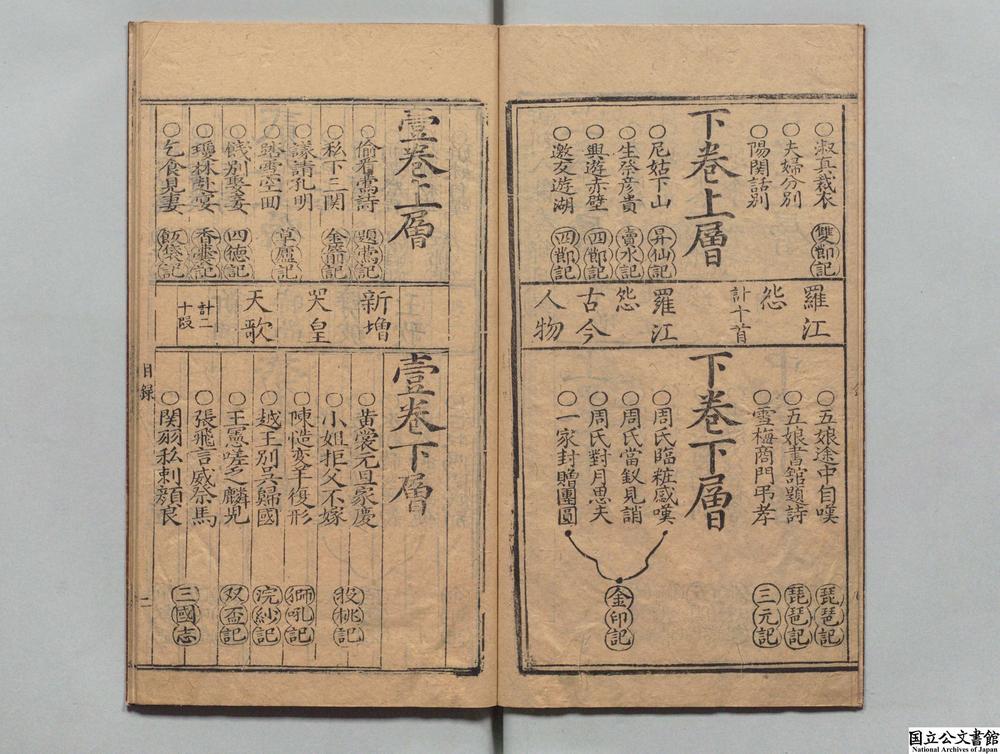 ○淑真裁衣
○夫婦分別 雙節記
○陽関話別
下卷上層
○尼姑下山 昇仙記
○生祭彦貴 賣水記
○興遊赤壁 四節記
○邀友遊湖 四節記
羅江
怨
計十首
羅江
怨
古今
人物
○五娘途中自嘆 琵琶記
○五娘書館題詩 琵琶記
○雪梅商門弔孝 三元記
下卷下層
○周氏臨粧感嘆
○周氏當釵見誚
○周氏對月思夫
○一家封贈團圓
金印記
壹卷上層
○偷看鶯詩 題鶯記
○私下三関 金箭記
○議請孔明
○踏雪空回 草廬記
○餞別娶妻 四德記
○瓊林赴宴 香囊記
○乞食見妻
新增
哭皇
天歌
計二
十段
壹卷下層
○黄愛元旦家慶
○小姐拒父不嫁 投桃記
○陳慥变羊復形 獅吼記
○越王別吳歸國 浣紗記
○王憲嗟乏麟児 双盃記
○張飛言威祭馬
○関羽私刺顏良 三國志
目録
二
国立公文書館
National Archives of Japan